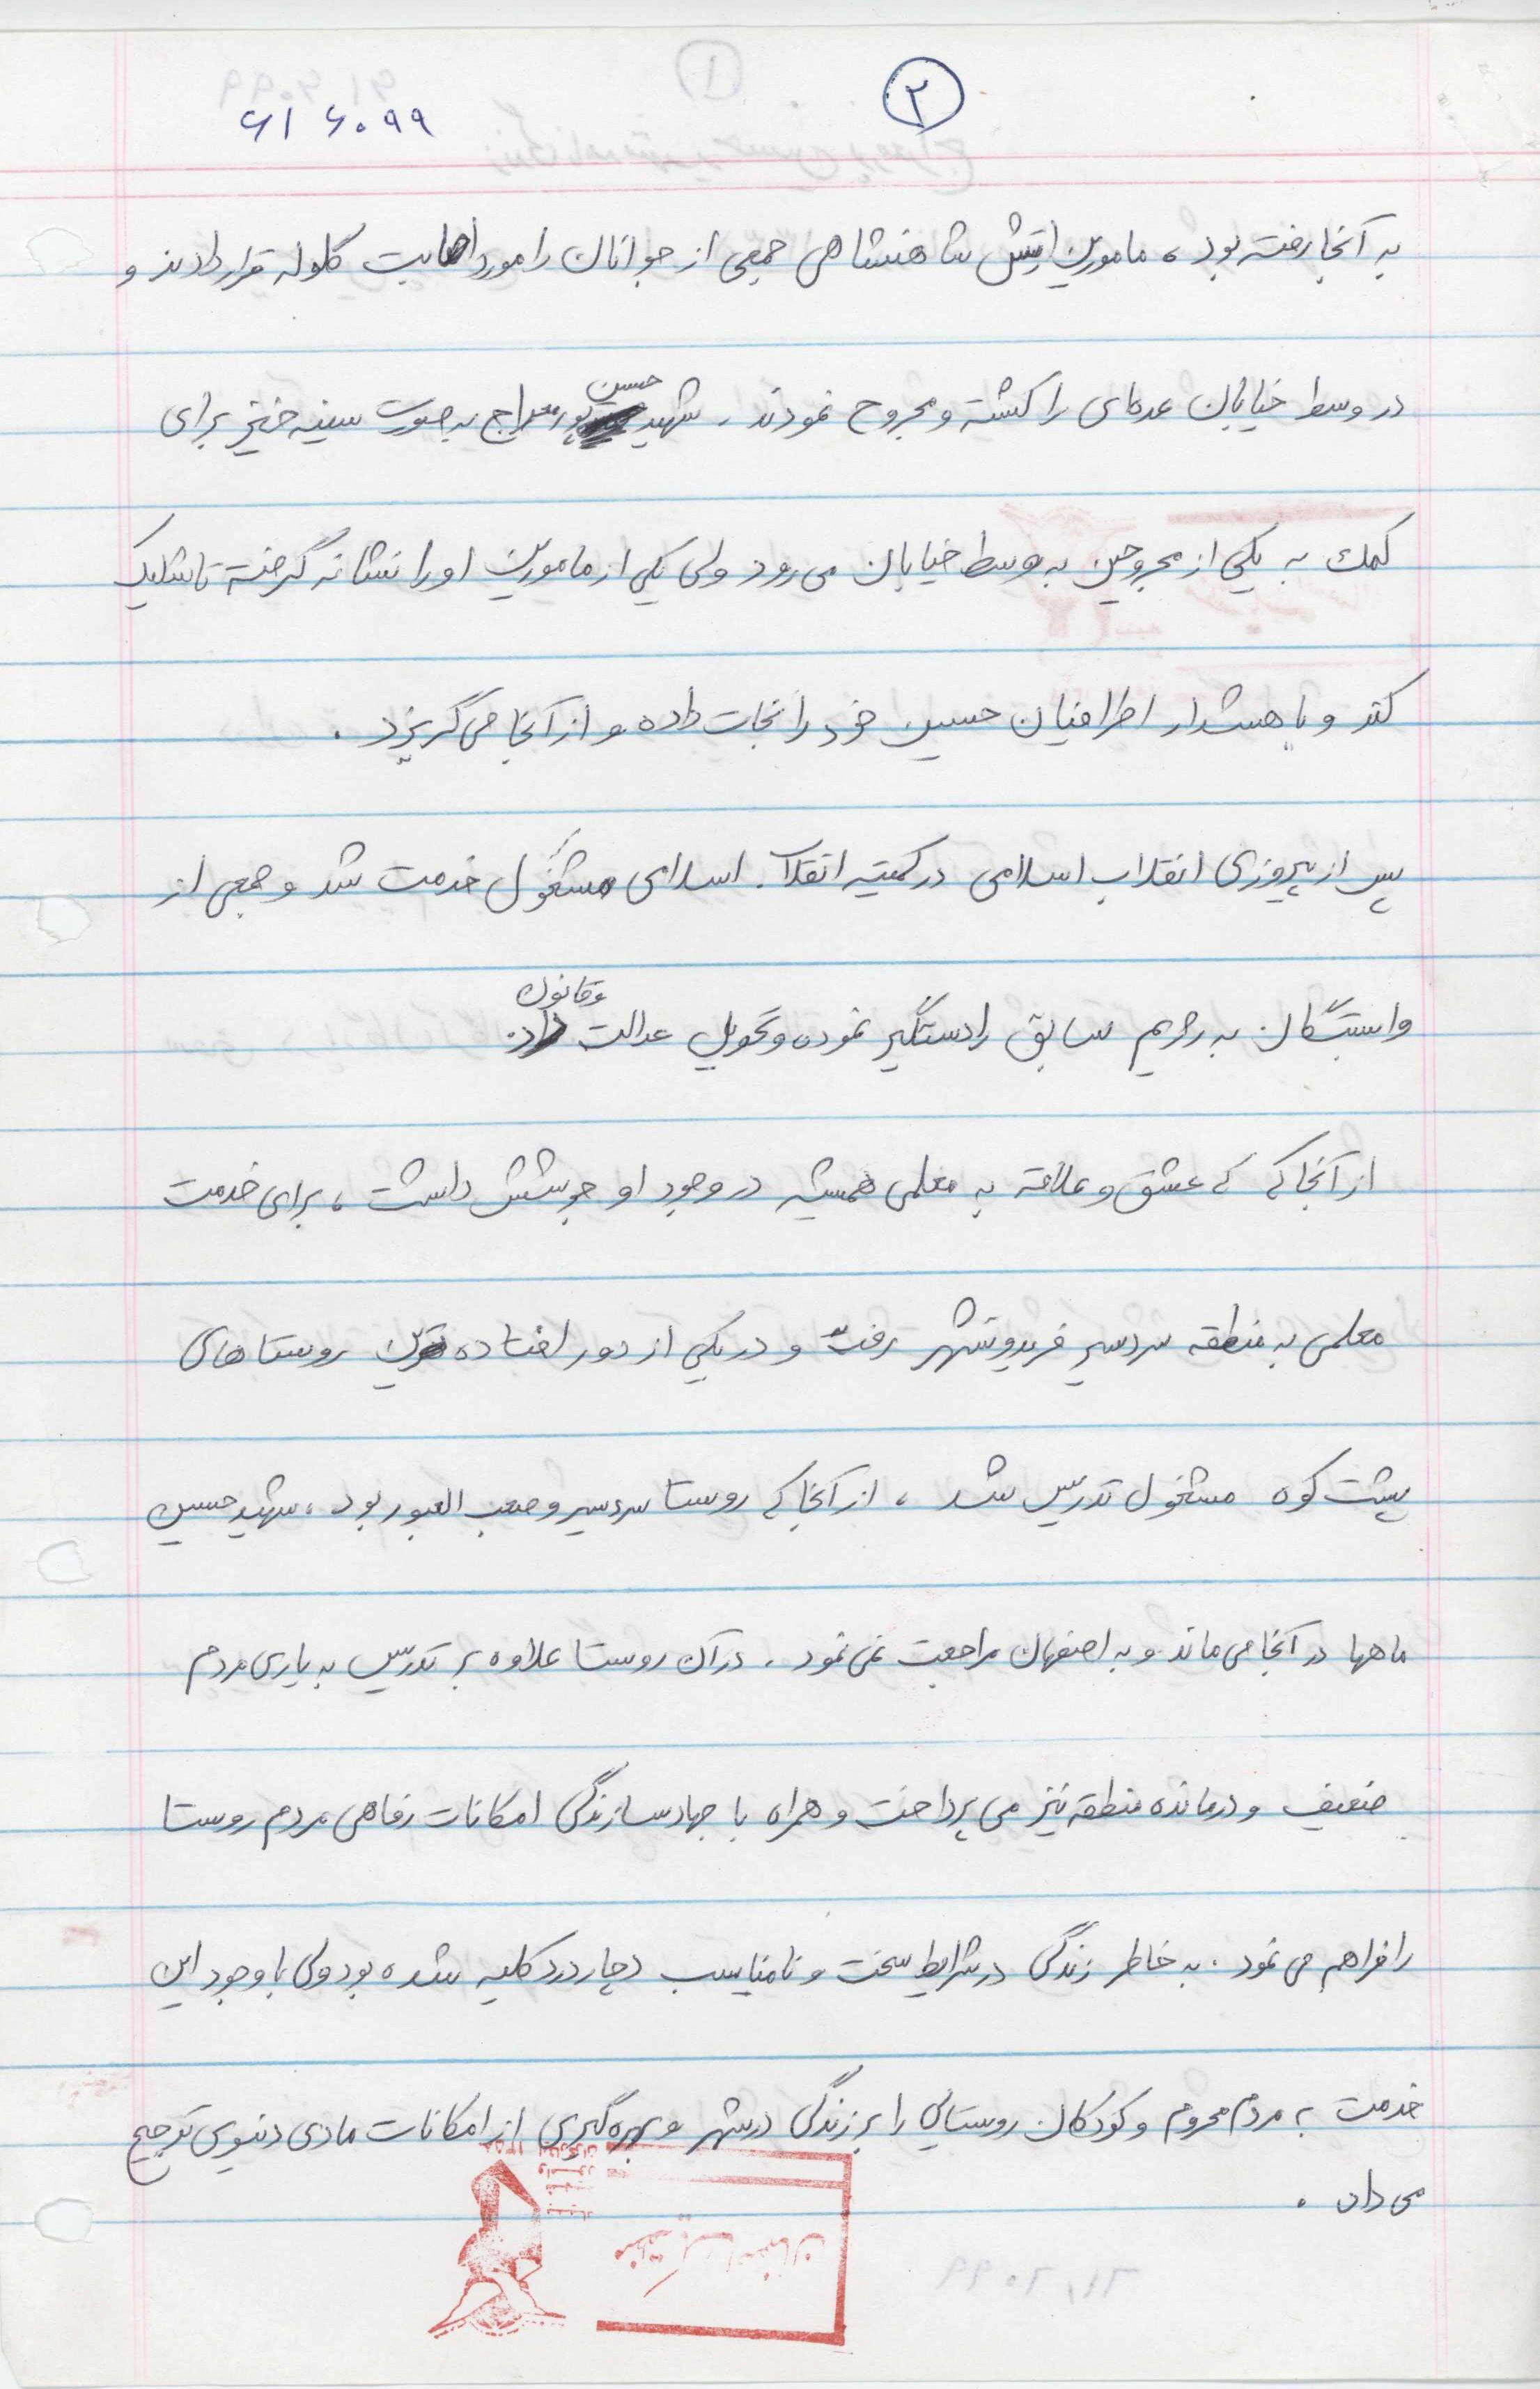 ۲
۶۱۶۰۹۹
به آنجا رفته بود، مامورین ارتش شاهنشاهی جمعی از جوانان را مورد اصابت گلوله قرار دادند و
در وسط خیابان عده‌ای را کشته و مجروح نمودند. شهید حسین پورمعراج به صورت سینه خیز برای
کمک به یکی از مجروحین به وسط خیابان می رود ولی یکی از مامورین او را نشانه گرفته تا شلیک
کند و با هشدار اطرافیان حسین خود را نجات داده و از آنجا می گریزد.
پس از پیروزی انقلاب اسلامی در کمیته انقلاب اسلامی مشغول خدمت شد و جمعی از
وابستگان به رژیم سابق را دستگیر نموده و تحویل عدالت و قانون داد.
از آنجا که که عشق و علاقه به معلمی همیشه در وجود او جوشش داشت، برای خدمت
معلمی به منطقه سردسیر فریدونشهر رفت و در یکی از دور افتاده ترین روستاهای
پشت کوه مشغول تدریس شد، از آنجا که روستا سردسیر و صعب العبور بود، شهید حسین
ماهها در آنجا می ماند و به اصفهان مراجعت نمی نمود. در آن روستا علاوه بر تدریس به یاری مردم
ضعیف و درمانده منطقه نیز می پرداخت و همراه با جهاد سازندگی امکانات رفاهی مردم روستا
را فراهم می نمود. به خاطر زندگی در شرایط سخت و نامناسب دچار درد کلیه شده بود ولی با وجود این
خدمت به مردم محروم و کودکان روستایی را بر زندگی در شهر و بهره گیری از امکانات مادی دنیوی ترجیح
می داد.